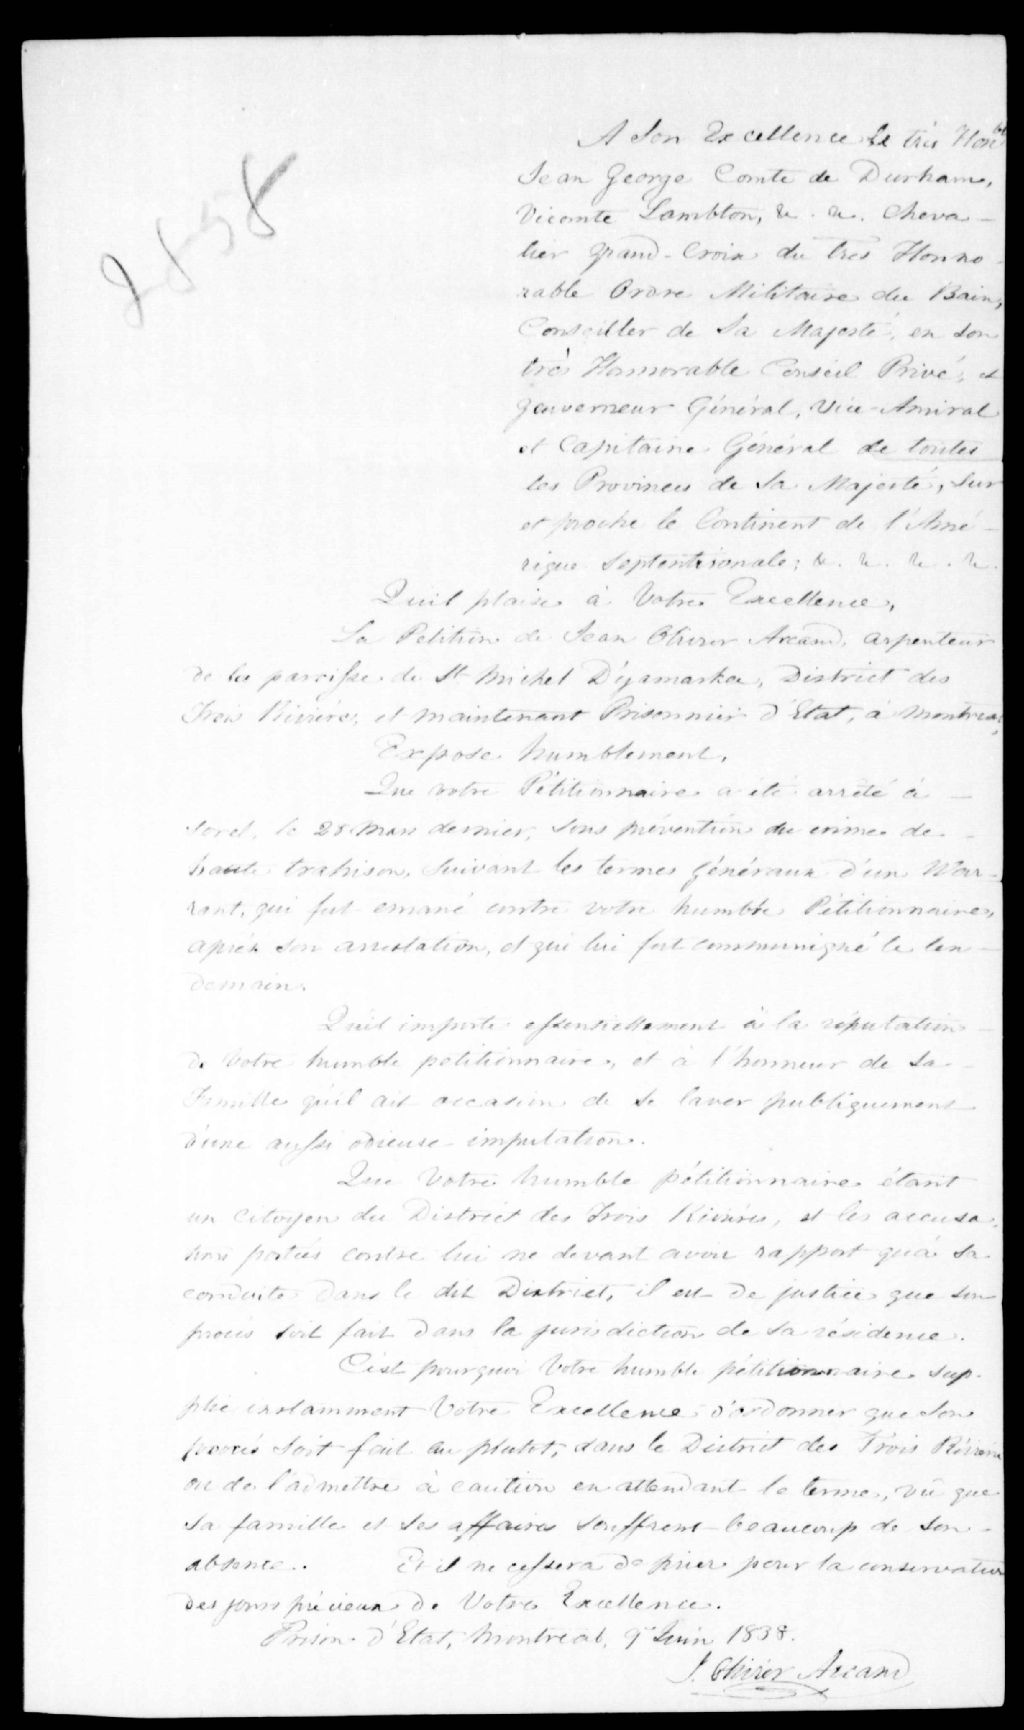 2858
A Son Excellence le très Honble
Jean George Comte de Durham,
Vicomte Lambton, &. &. Cheva-
lier grand-Croix du très Honno-
rable Ordre Militaire du Bain,
Conseiller de Sa Majesté, en son
très Honnorable Conseil Privé, et
gouverneur Général, Vice-Amiral
et Capitaine Général de toutes
les Provinces de Sa Majesté, sur
et proche le Continent de l'Amé-
rique Septentrionale; &. &. &. &.
Quil plaise à Votre Excellence,
La Petition de Jean Olivier Arcand, arpenteur
de la paroisse de St Michel D'yamaska, District des
Trois Rivières, et maintenant Prisonnier d'Etat, à Montreal,
Expose humblement,
Que votre Pétitionnaire a été arrêté à -
Sorel, le 28 Mars dernier, sous prévention du crime de -
haute trahison, suivant les termes généraux d'un War-
rant, qui fut emané contre votre humble Pétitionnaire,
après son arrestation, et qui lui fut communiqué le len-
demain.
Quil importe essentiellement à la réputation -
de Votre humble petitionnaire, et à l'honneur de sa -
Famille qu'il ait occasion de se laver publiquement
d'une aussi odieuse imputation.
Que Votre humble pétitionnaire étant
un citoyen du District des Trois Rivières, et les accusa-
tions portées contre lui ne devant avoir rapport qu'à sa
conduite dans le dit District, il est de justice que son
procès soit fait dans la jurisdiction de sa résidence.
C'est pourquoi Votre humble pétitionnaire sup-
plie instamment Votre Excellence d'ordonner que Son
procès soit fait au plutot, dans le District des Trois Rivières
ou de l'admettre à caution en attendant le terme, vû que
sa famille et ses affaires souffrent beaucoup de son -
absence.. Et il ne cessera de prier pour la conservation
des jours précieux de Votre Excellence.
Prison d'Etat, Montreal, 9 Juin 1838.
J. Olivier Arcand